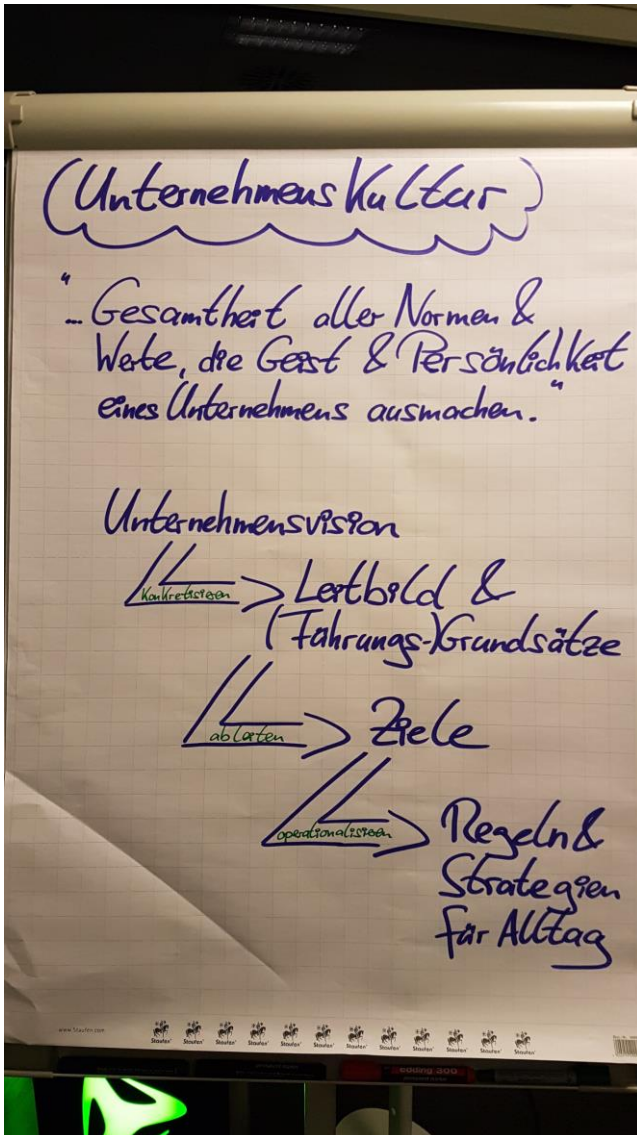 Unternehmenskultur
"... Gesamtheit aller Normen &
Werte, die Geist & Persönlichkeit
eines Unternehmens ausmachen."
Unternehmensvision
konkretisieren
Leitbild &
(Führungs-)Grundsätze
ableiten
Ziele
operationalisieren
Regeln &
Strategien
für Alltag
www.Staufen.com
Staufen Staufen Staufen Staufen Staufen Staufen Staufen Staufen Staufen Staufen Staufen Staufen
edding 300